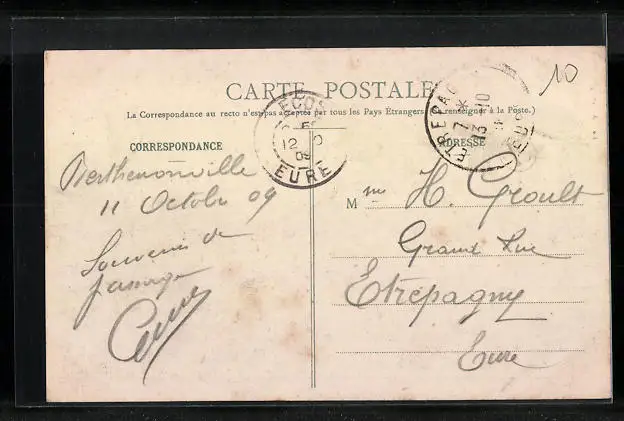 10
CARTE POSTALE
La Correspondance au recto n'est pas acceptée par tous les Pays Étrangers (Se renseigner à la Poste.)
CORRESPONDANCE
ADRESSE
ECOS
12
09
EURE
ETREPAGNY
7 *
13 -10
EURE
Berthenonville
11 Octobre 09
Souvenir de
passage
M me H. Groult
Grande Rue
Etrépagny
Eure